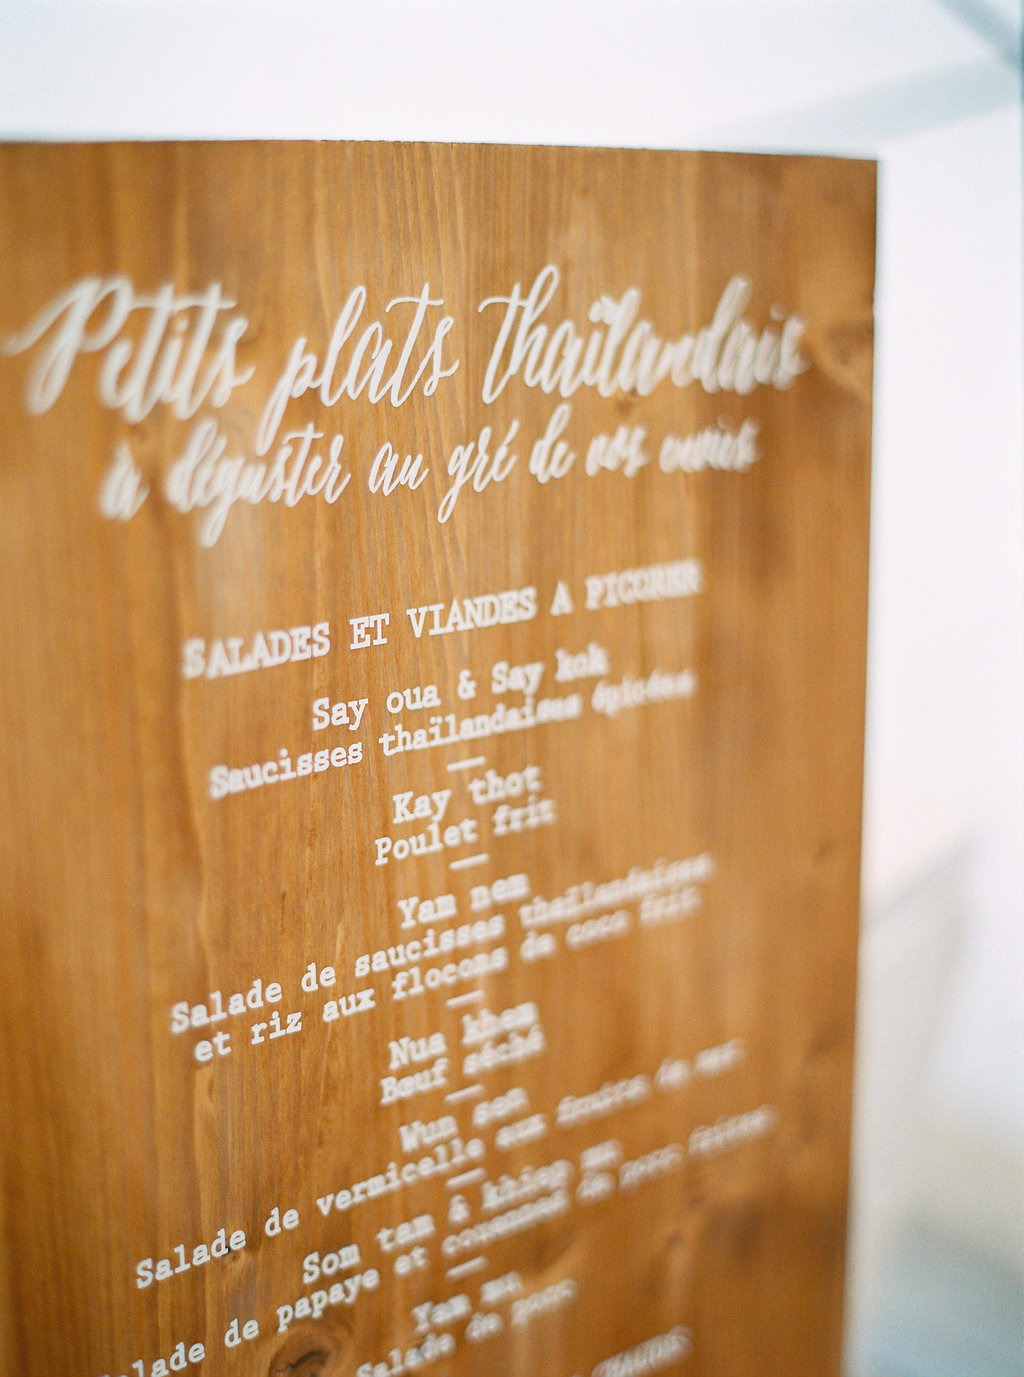 Petits plats thaïlandais
à déguster au gré de vos envies
SALADES ET VIANDES A PICORER
Say oua & Say kok
Saucisses thaïlandaises épicées
Kay thot
Poulet frit
Yam nem
Salade de saucisses thaïlandaises
et riz aux flocons de coco frit
Nua khem
Bœuf séché
Wun sen
Salade de vermicelle aux fruits de mer
Som tam & khiep mu
Salade de papaye et couennes de porc frites
Yam mu
Salade de porc
CHAUDES